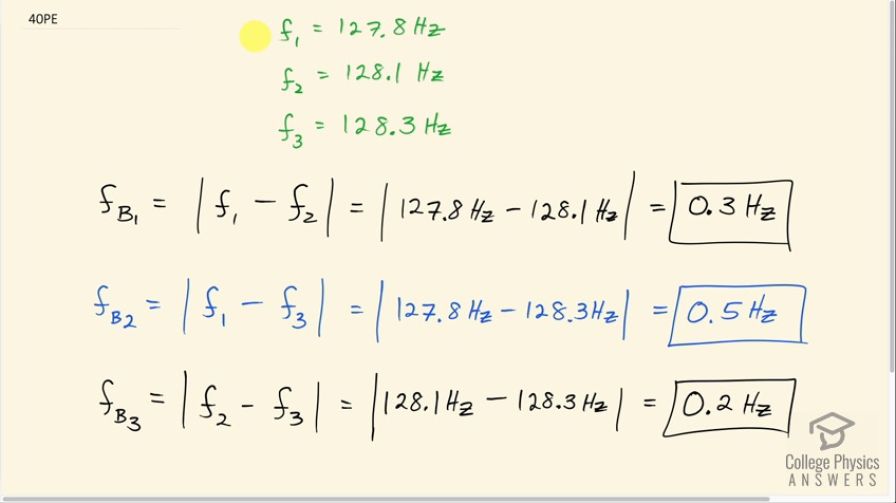 40PE
f₁ = 127.8 Hz
f₂ = 128.1 Hz
f₃ = 128.3 Hz
f_B₁ = |f₁ − f₂| = |127.8 Hz − 128.1 Hz| = 0.3 Hz
f_B₂ = |f₁ − f₃| = |127.8 Hz − 128.3 Hz| = 0.5 Hz
f_B₃ = |f₂ − f₃| = |128.1 Hz − 128.3 Hz| = 0.2 Hz
College Physics
ANSWERS